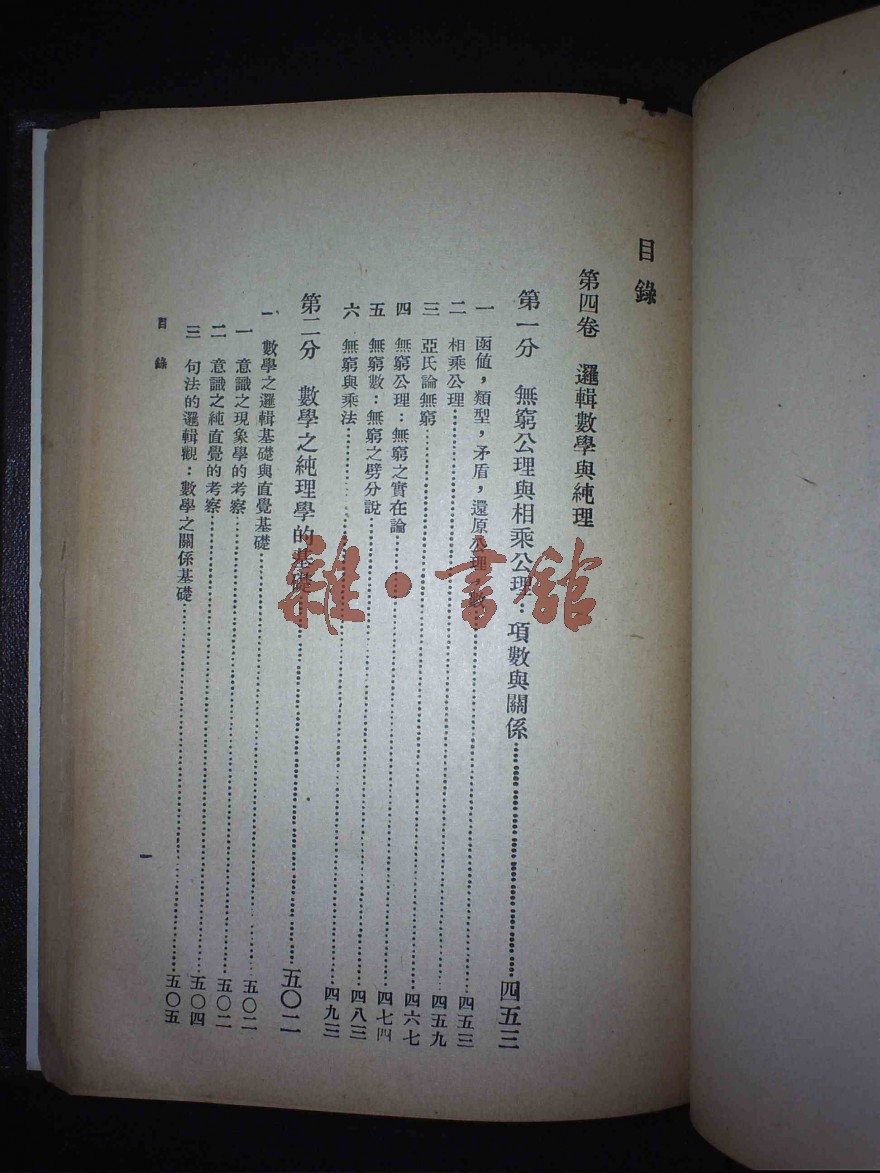 目錄
第四卷 邏輯數學與純理
第一分 無窮公理與相乘公理：項數與關係……四五三
一 函值，類型，矛盾，還原公理，數……四五三
二 相乘公理……四五九
三 亞氏論無窮……四六七
四 無窮公理：無窮之實在論……四七四
五 無窮數：無窮之劈分說……四八三
六 無窮與乘法……四九三
第二分 數學之純理學的基礎……五〇二
一、數學之邏輯基礎與直覺基礎……五〇二
一 意識之現象學的考察……五〇二
二 意識之純直覺的考察……五〇四
三 句法的邏輯觀：數學之關係基礎……五〇五
目錄
一
雜·書館